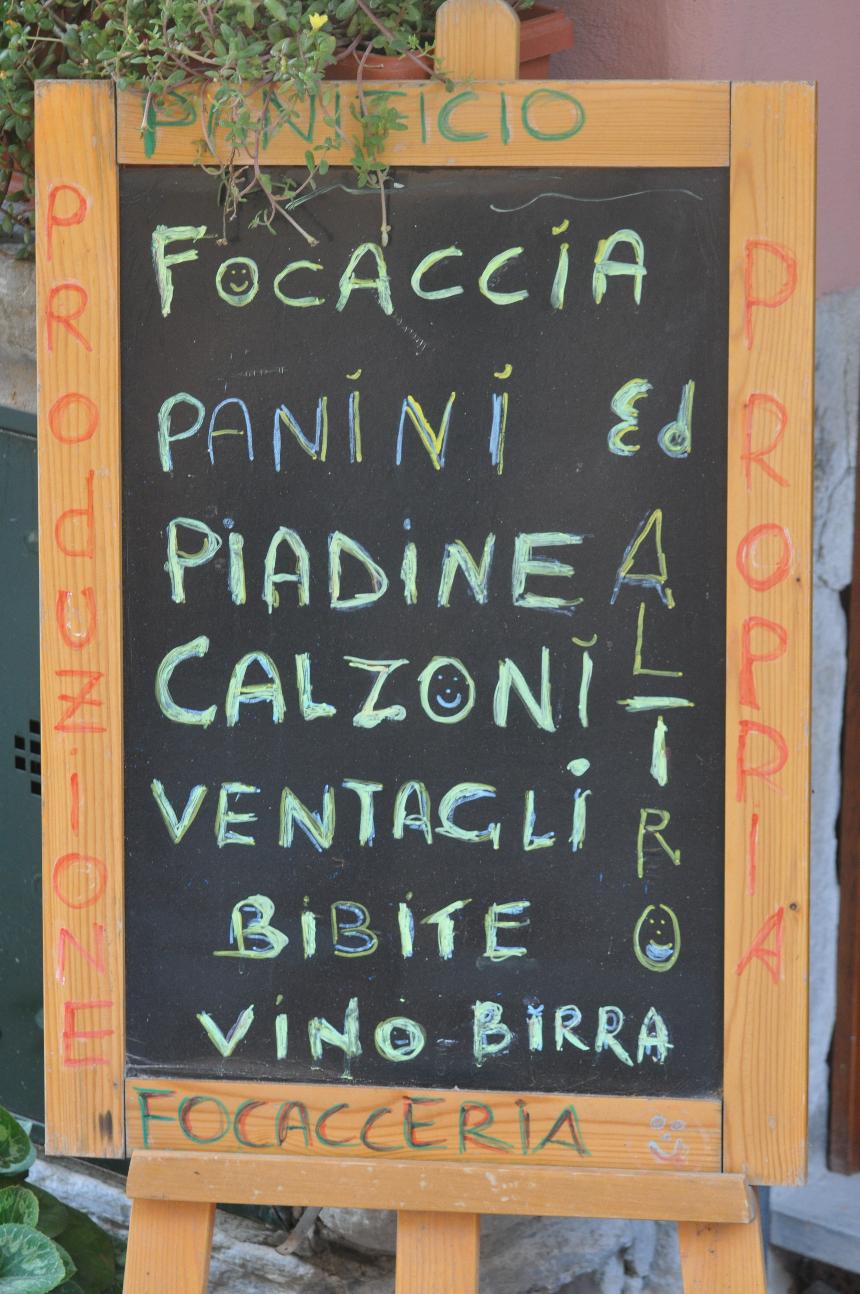 PANIFICIO
PRODUZIONE
PROPRIA
FOCACCIA
PANINI Ed
PIADINE
ALTRO
CALZONI
VENTAGLI
BIBITE
VINO BIRRA
FOCACCERIA